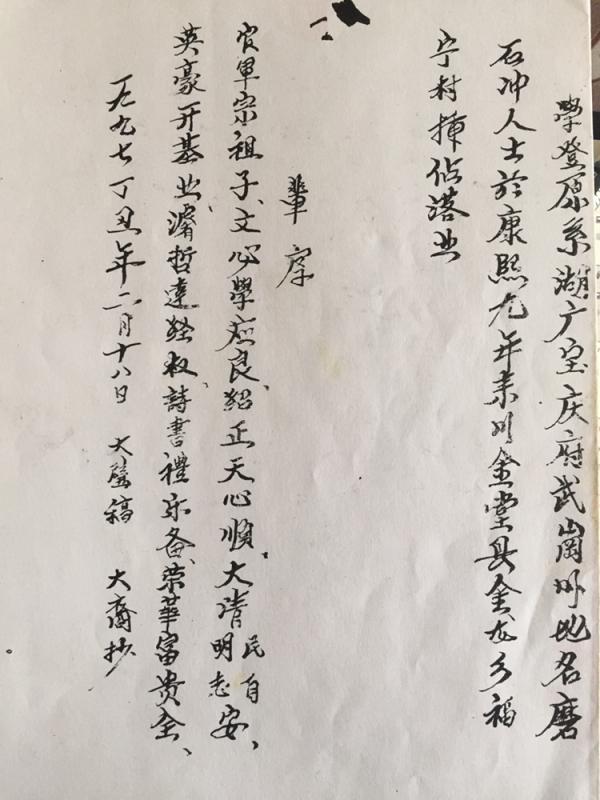 學登原系湖广宝庆府武崗州地名磨
石冲人士於康熙九年来川金堂县金龙乡福
宁村插佔落业
輩序
官軍宗祖子、文必學應良、紹正天心順、大清民自安、
明志
英豪开基业、濬哲達經权、詩書禮乐备、荣華富贵全、
一九九七丁丑年二月十八日 大瑩稿 大裔抄